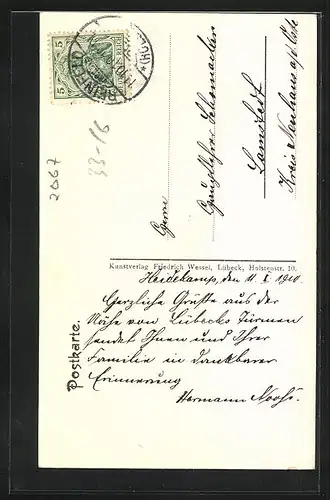 5
5
REICH
REINFELD
2067
33-16
Herrn
Hauptlehrer Schomacker
Lamstedt
Kreis Neuhaus a/d Oste
Kunstverlag Friedrich Wessel, Lübeck, Holstenstr. 10.
Heidekamp, den 11. I. 1910
Herzliche Grüsse aus der
Nähe von Lübecks Türmen
sendet Ihnen und Ihrer
Familie in dankbarer
Erinnerung
Hermann
Postkarte.